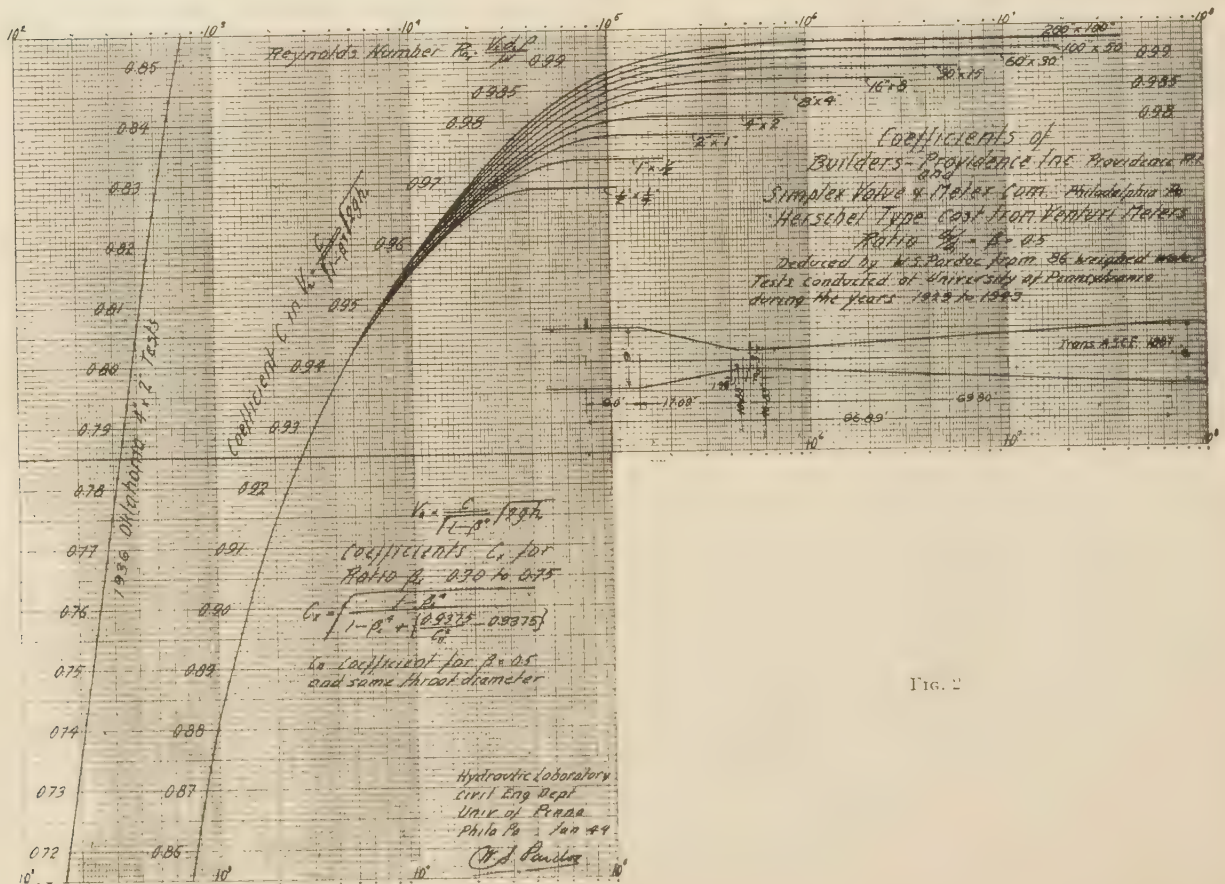 10² 10³ 10⁴ 10⁵ 10⁶ 10⁷ 10⁸
Reynolds Number
0.99
0.985
0.98
0.97
0.96
0.95
0.94
0.93
0.92
0.91
0.90
0.89
0.88
0.87
0.86
0.85
0.84
0.83
0.82
0.81
0.80
0.79
0.78
0.77
0.76
0.75
0.74
0.73
0.72
1936 Oklahoma 4" x 2" Tests
Coefficient C in V₂ = C/√(1-β⁴) √2gh
200" x 100"
100 x 50
60" x 30"
30" x 15
16" x 8
8" x 4
4" x 2
2" x 1
1" x ½
½" x ¼"
0.99
0.985
0.98
Coefficients of
Builders-Providence Inc Providence
and
Simplex Valve & Meter Com. Philadelphia Pa
Herschel Type Cast Iron Venturi Meters
Ratio = β = 0.5
Deduced by W.S. Pardoe from 86 weighed water
Tests conducted at University of Pennsylvania
during the years
Trans A.S.C.E.
17.09'
69.80
96.89'
10⁶ 10⁷ 10⁸
V₂ = C/√(1-β⁴) √2gh
Coefficients Cₓ for
Ratio βₓ 0.30 to 0.75
Cₓ = √((1-βₓ⁴)/(1-βₓ⁴+{0.9375/C₀²-0.9375}))
C₀ Coefficient for β = 0.5
and same throat diameter
Hydraulic Laboratory
Civil Eng Dept
Univ of Penna
Phila Pa. Jan 44
W S Pardoe
FIG. 2